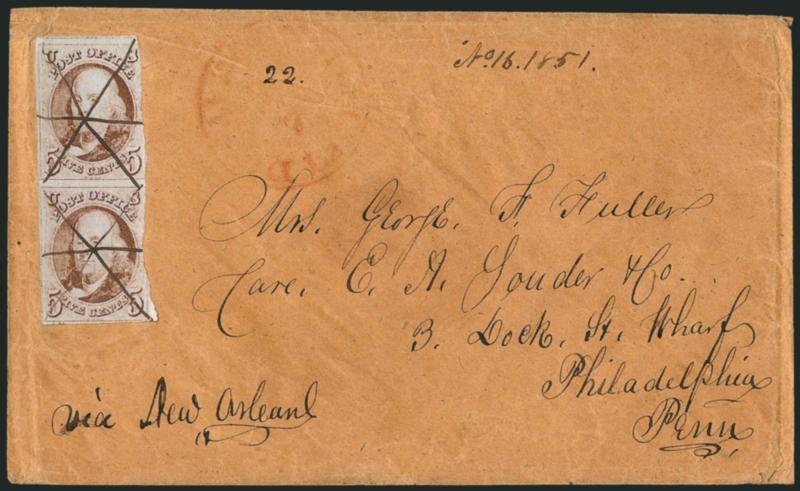 POST OFFICE
FIVE CENTS
5 5
POST OFFICE
FIVE CENTS
5 5
22.
No 16. 1851.
Mrs. George. F. Fuller
Care, E. A. Souder & Co.
3. Dock. St. Wharf
Philadelphia
Penn
via New Orleans